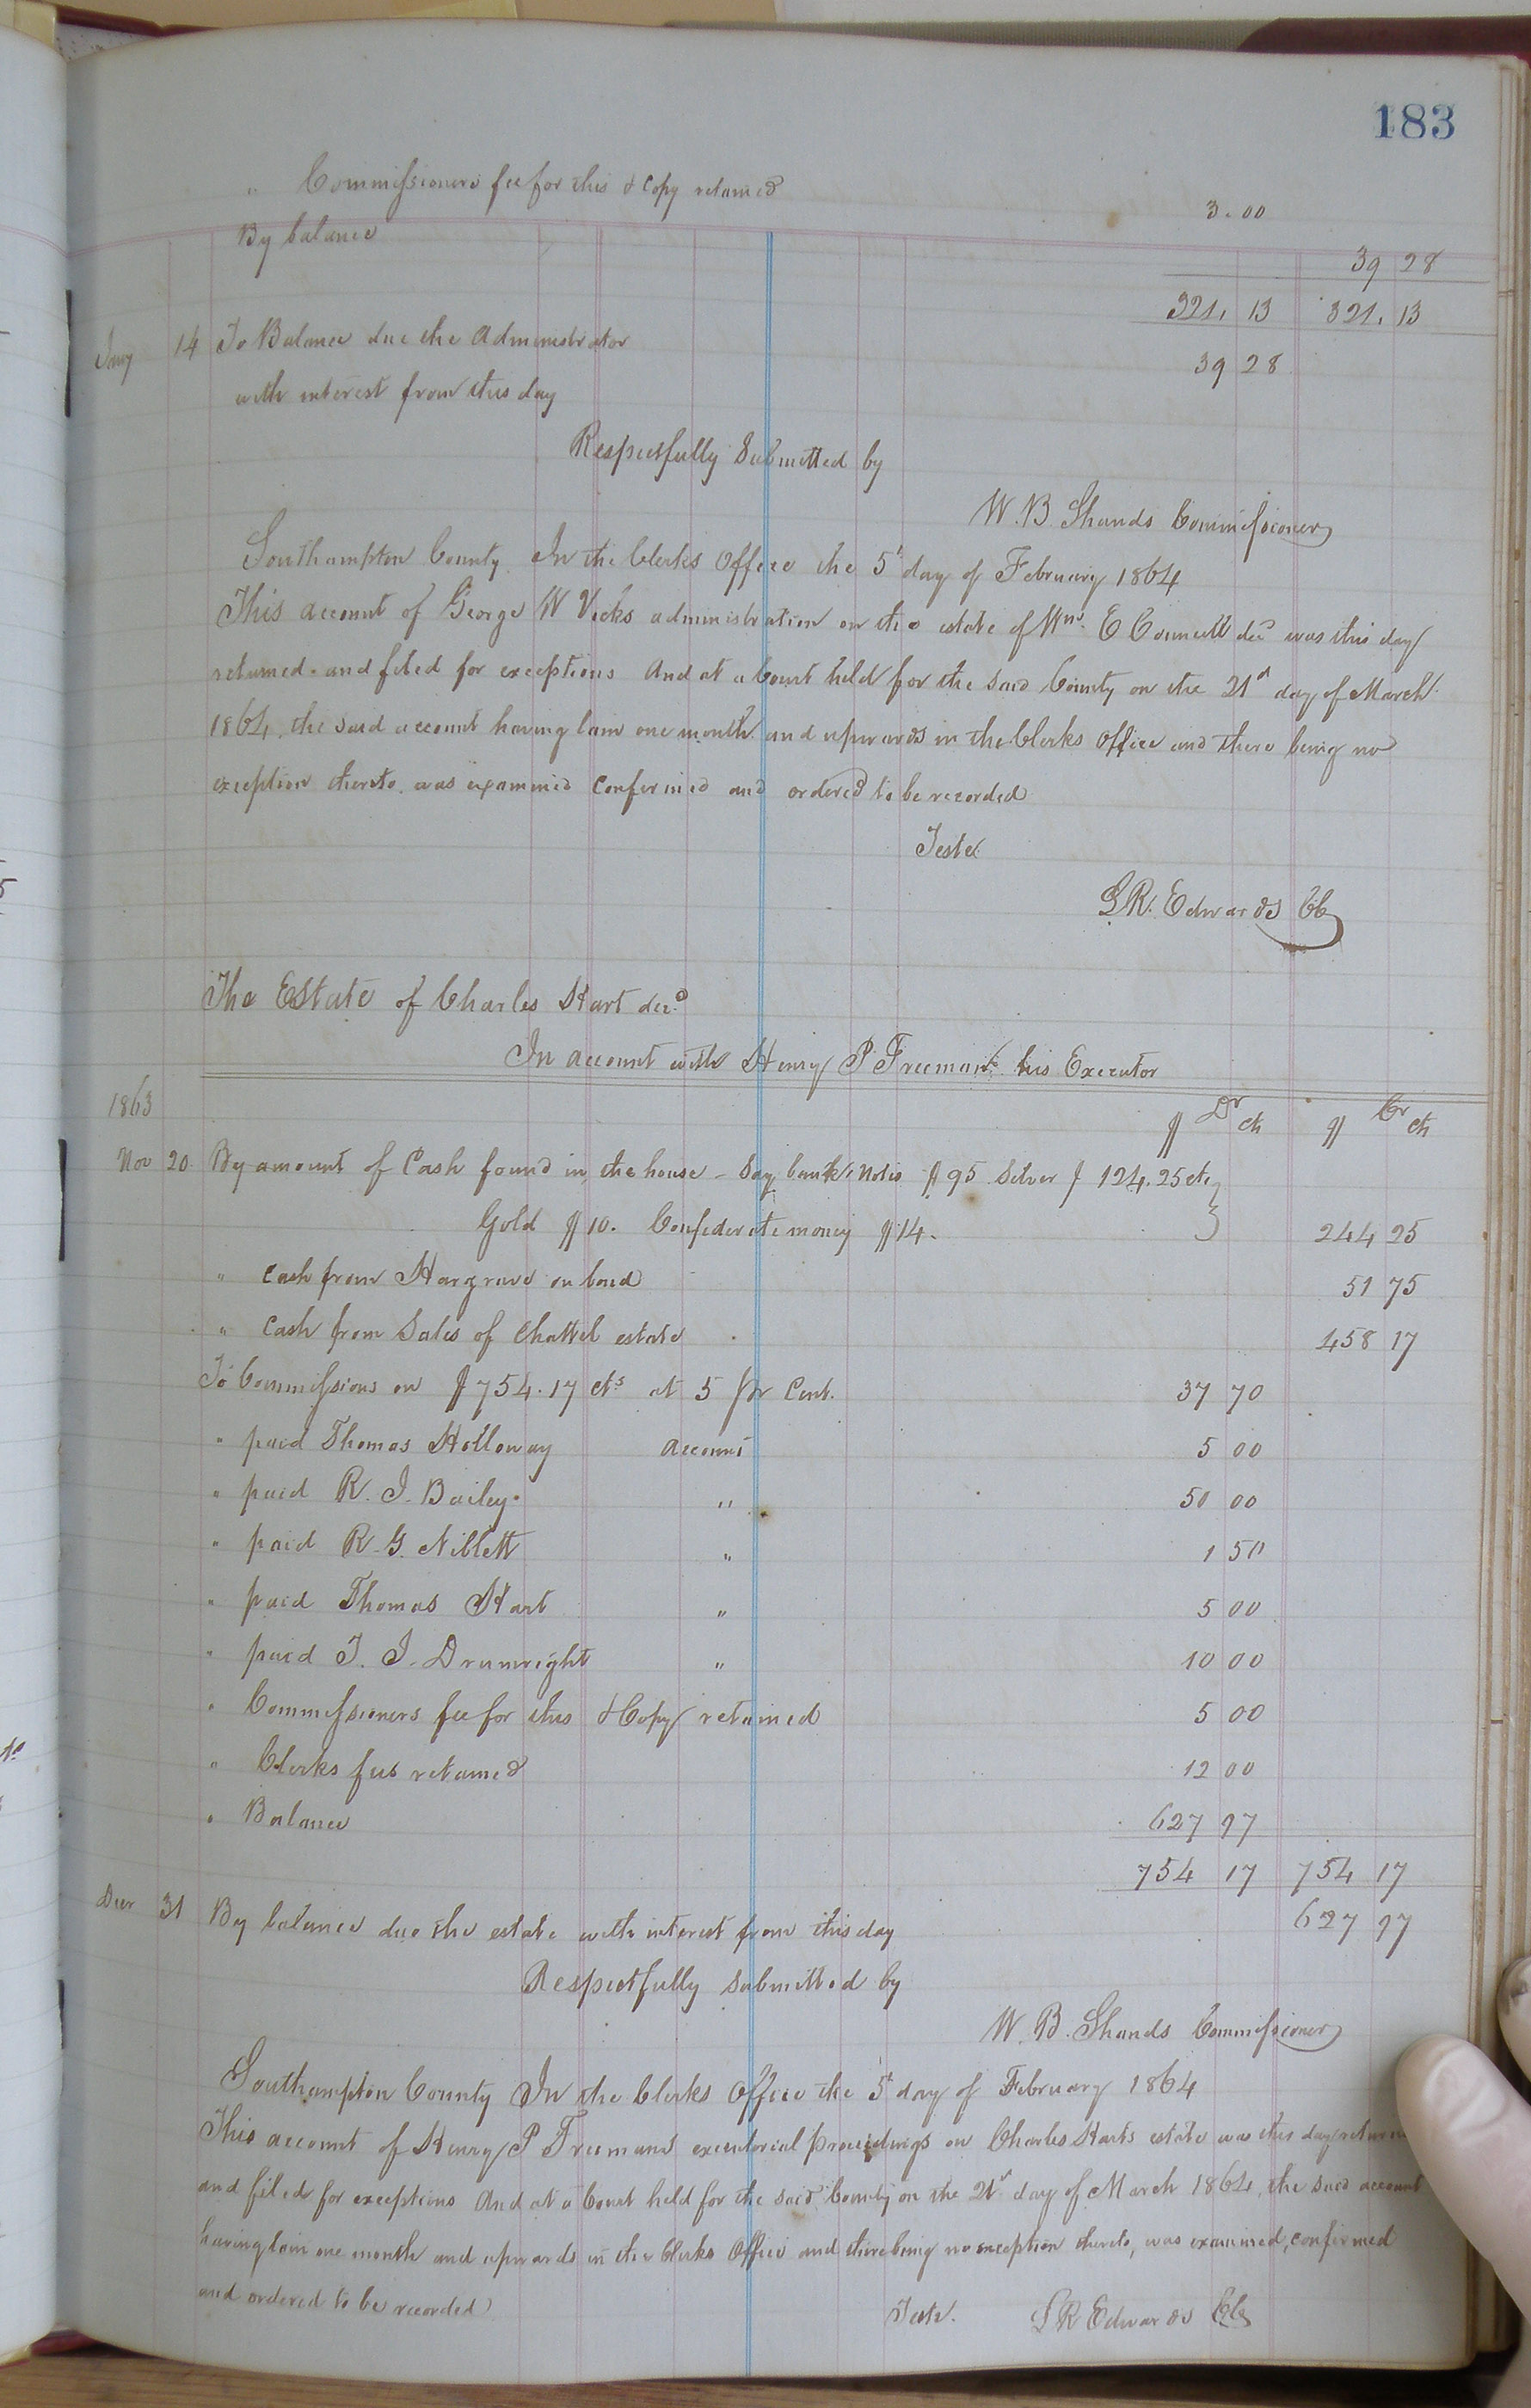 183
" Commissioners fee for this & Copy retained 3.00
By balance 39 28
321. 13 321. 13
Jany 14 To Balance due the Administrator 39 28
with interest from this day
Respectfully Submitted by
W. B. Shands Commissioner
Southampton County In the Clerks Office the 5t day of February 1864
This account of George W Vicks administration on the estate of Wm. E Councill decd was this day
returned and filed for exceptions And at a Court held for the said County on the 21st day of March
1864, the said account having lain one month and upwards in the Clerks Office and there being no
exception thereto was examined confirmed and ordered to be recorded
Teste
L R. Edwards CC
The Estate of Charles Hart decd
In account with Henry P Freeman his Executor
1863 $ Dr cts $ Cr cts
Nov 20 By amount of Cash found in the house – Say bank Notes $95 Silver $124.25cts
Gold $10. Confederate money $14. 244 25
" Cash from Hargrave on bond 51 75
" Cash from Sales of Chattel estate 458 17
To Commissions on $754.17 cts at 5 pr Cent. 37 70
" paid Thomas Holloway account 5 00
" paid R. J. Bailey " 50 00
" paid R. G. Niblett " 1 50
" paid Thomas Hart " 5 00
" paid T. J. Drumwright " 10 00
" Commissioners fee for this & Copy retained 5 00
" Clerks fees retained 12 00
" Balance 627 97
754 17 754 17
Decr 31 By balance due the estate with interest from this day 627 97
Respectfully submitted by
W. B. Shands Commissioner
Southampton County In the Clerks Office the 5t day of February 1864
This account of Henry P Freemans executorial proceedings on Charles Harts estate was this day
and filed for exceptions And at a Court held for the said County on the 21st day of March 1864, the said account
having lain one month and upwards in the Clerks Office and there being no exception thereto, was examined, confirmed
and ordered to be recorded
Teste. L R Edwards Clk